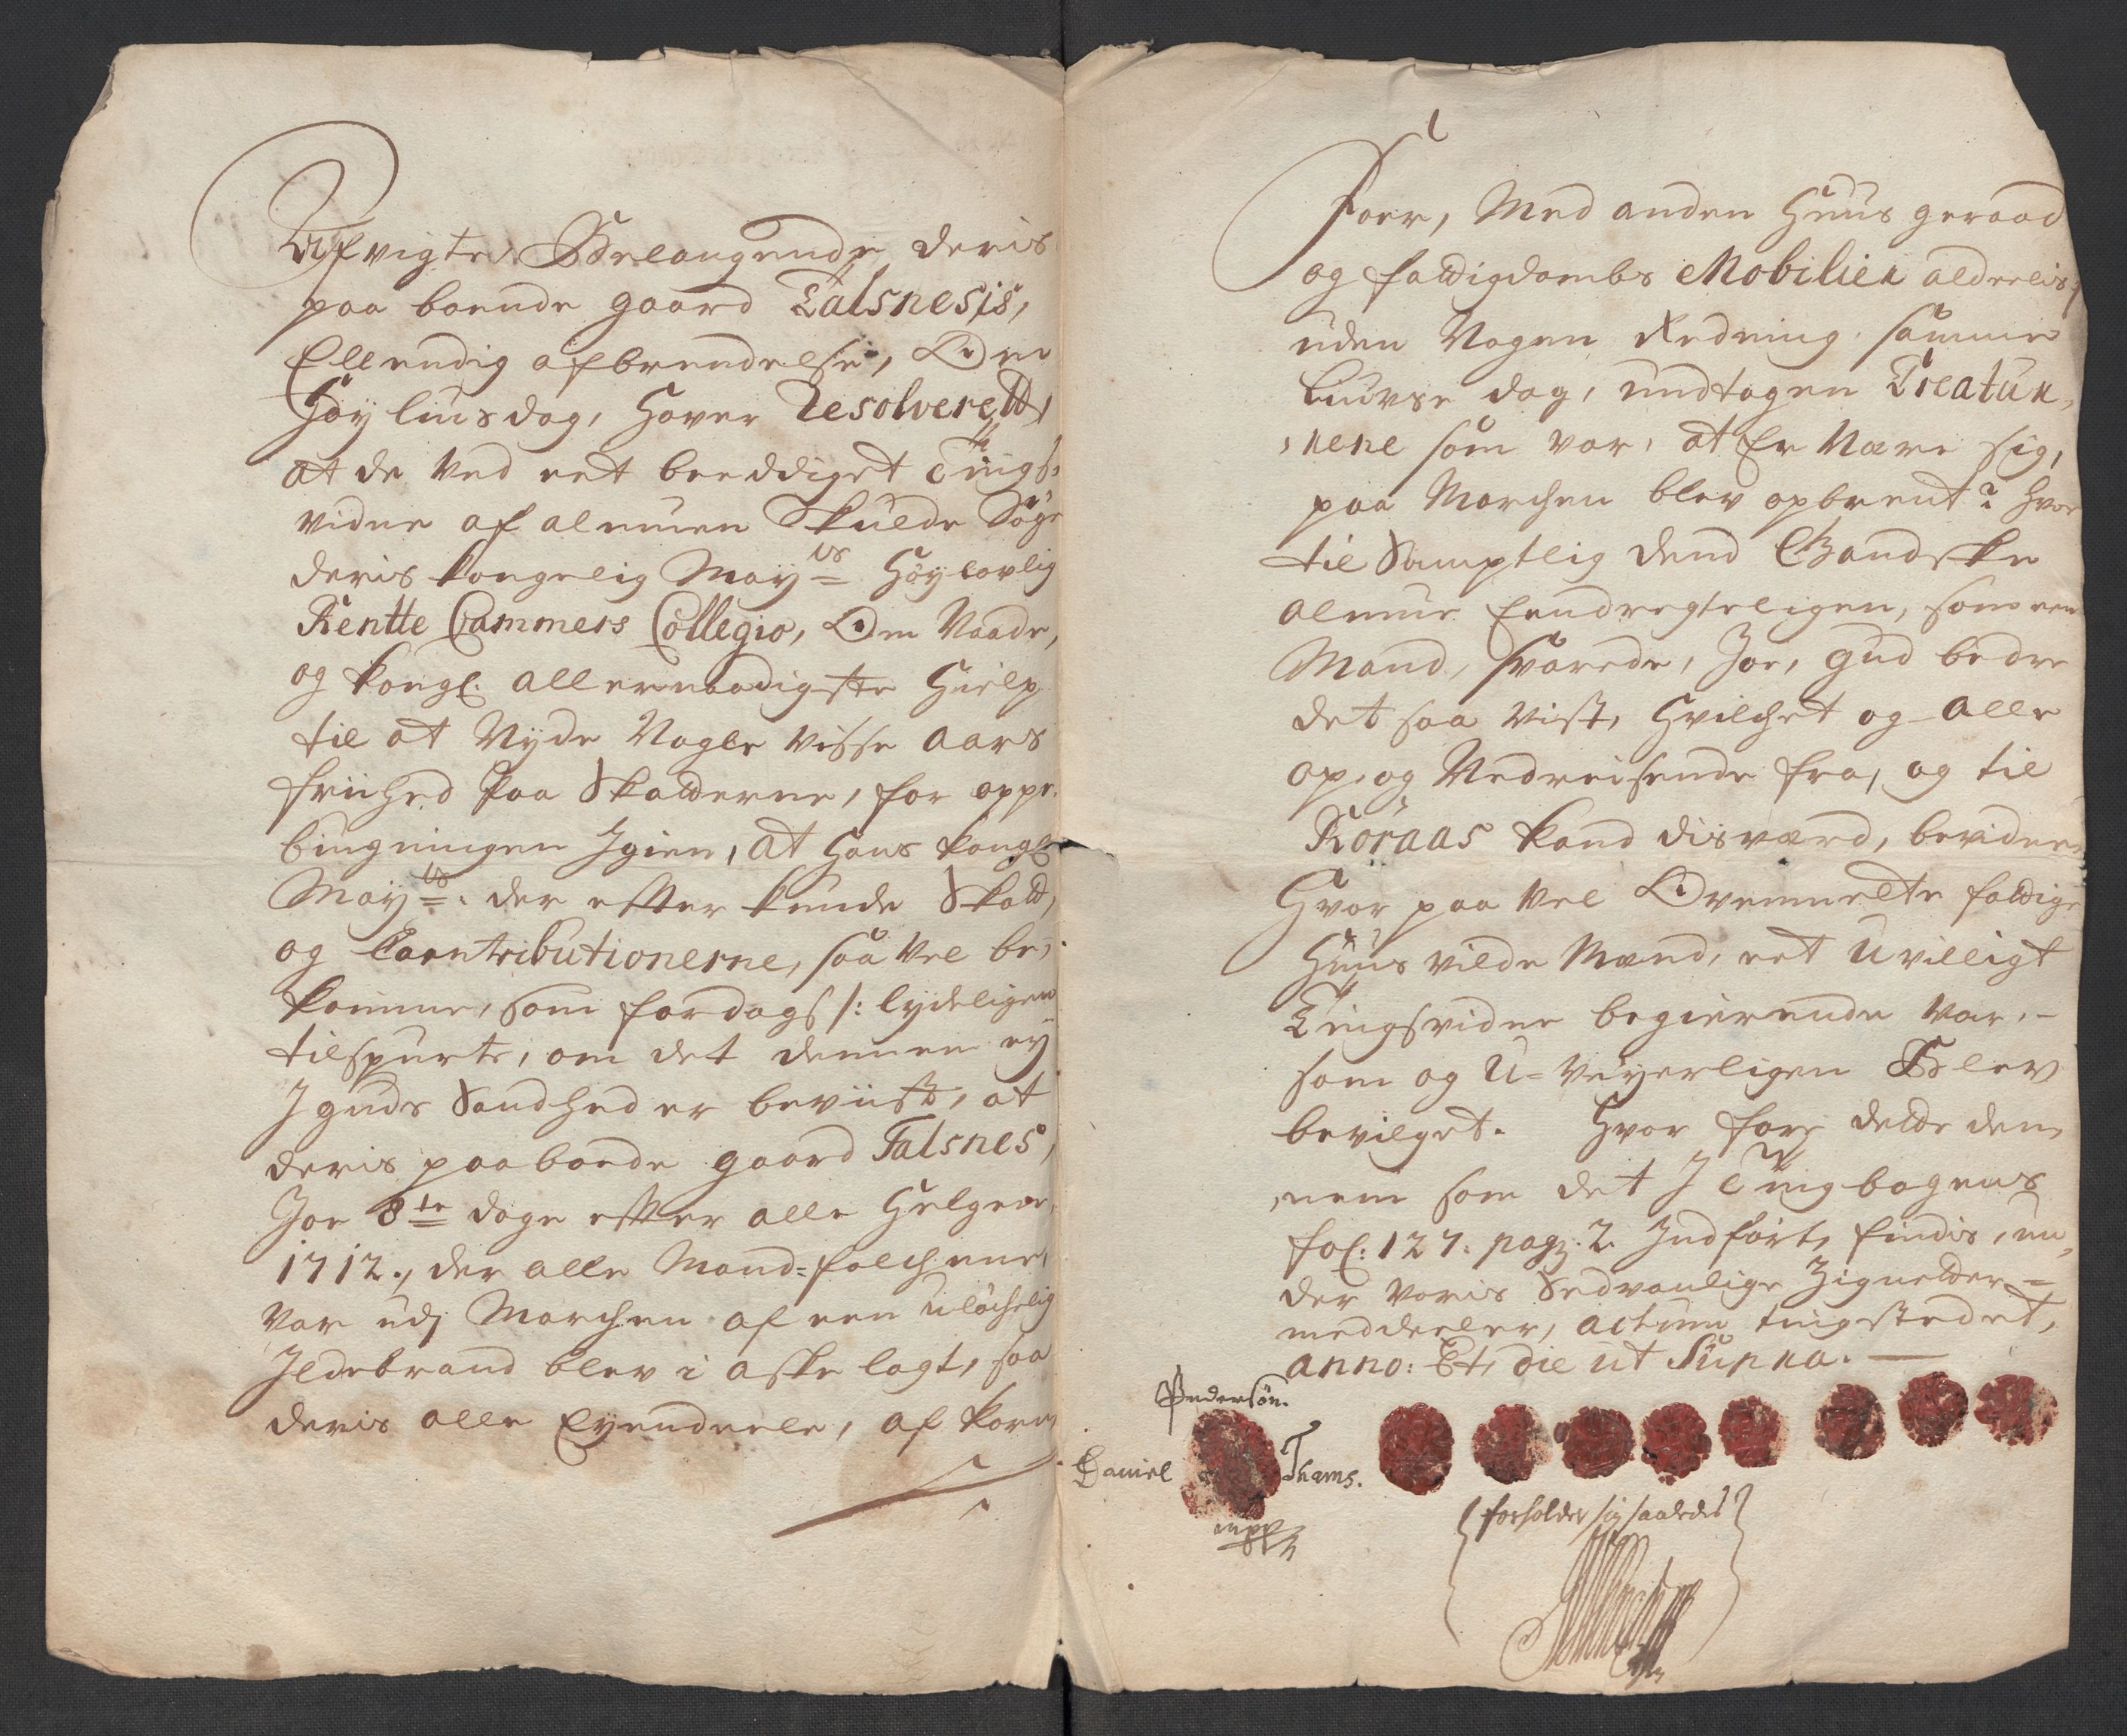 Afvigte, Belangende deris
paa boende gaard Talsnesis,
Ellendig afbrendelse, Om
Høylius dag, hafver Resolverett,
at de ved eet beeddiget Tings-
vidne af almuen Skulde Søge
deris kongelig May.ts Høylovlig
Rentte Cammers Collegio, Om Naade,
og kongl. allernaadigste Hielp
til at Nyde Nogle visse aars
friihed paa Skatterne, for oppe,
bygningen Igien, at Hans kongl.
May.ts der effter kunde Skatt,
og Contributionerne, saa vel be,
komme, som fordags /: lydeligen
tilspurte, om det dennem ey
I guds Sandhed er beviist, at
deris paaboede gaard Talsnes,
Joe 8te dage effter alle Helgene,
1712., der alle Mand-folchene
var udj Marchen af een uløchelig
Ildebrand blev i aske lagt, saa
deris alle Eyendeele, af korn
Foer, Med anden Huus geraad
og fattigdombs Mobilier alderlis,
uden Nogen Redning samme
Liuvse dag, undtagen Creatur,
,nene som var, at Er Nære sig,
paa Marchen blev opbrent? hvor
til Samptlig dend Gandske
almue Eendregteligen, som een
Mand, svarede, Joe, gud bedre
det saa vist, Hvilchet og alle
op, og Nedreisende fra, og til
Røraas kand disværd, bevidne,
Hvor paa vel Ovenmelte fattige
Huusvilde Mænd, eet uvilligt
Tingsvidne begierende var,-
som og U-veyerligen Blev
bevilget. Hvor fore dette den,
,nem som det I Tingbogens
fol: 127. pag: 2. Indført, findis, un,
der voris Sedvanlige Zignetter
meddeeler, actum tingstedet,
anno: Et, die ut Supra.
Pedersøn.
Daniel Thams.
mpp
forholder sig saaledes